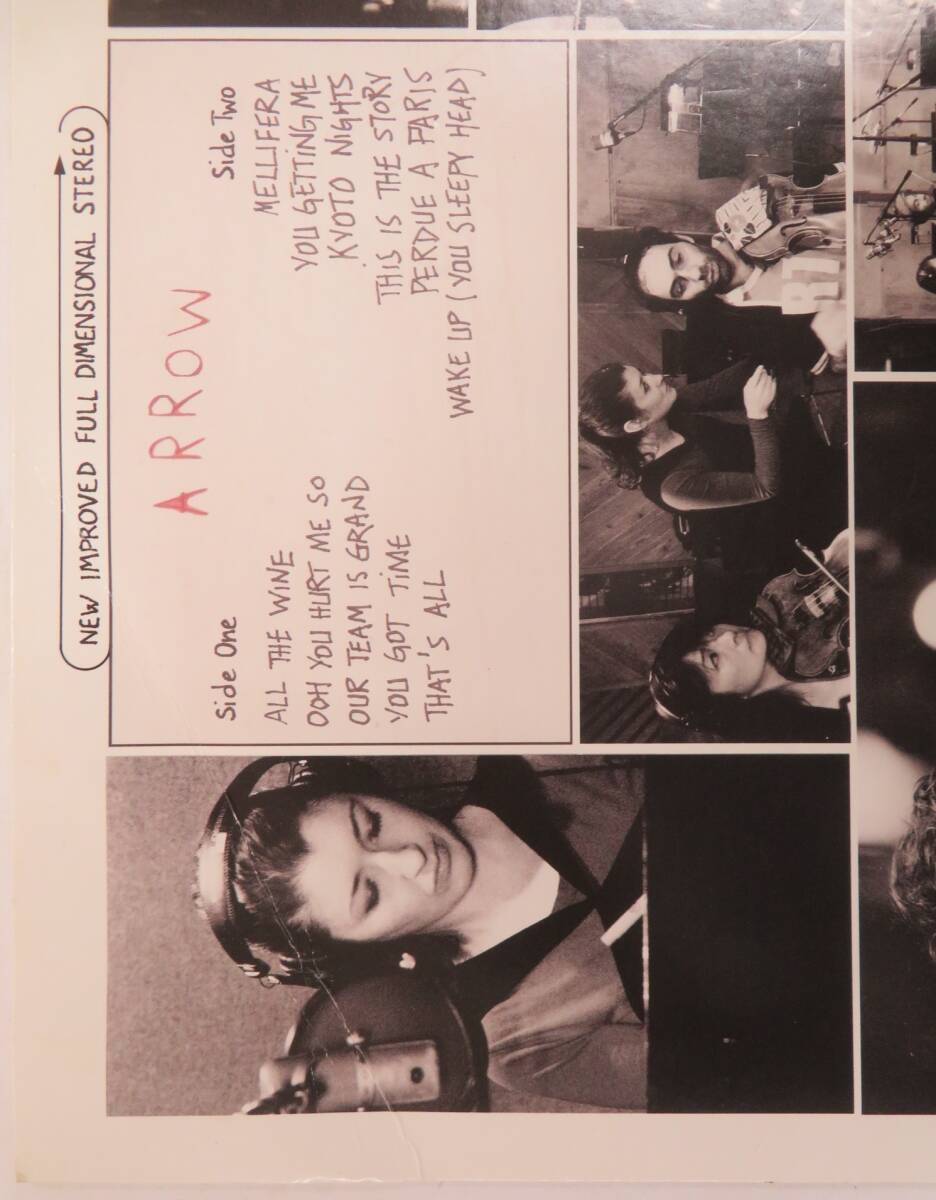 NEW IMPROVED FULL DIMENSIONAL STEREO
ARROW
Side One
ALL THE WINE
OOH YOU HURT ME SO
OUR TEAM IS GRAND
YOU GOT TIME
THAT'S ALL
Side Two
MELLIFERA
YOU GETTING ME
KYOTO NIGHTS
THIS IS THE STORY
PERDUE A PARIS
WAKE UP (YOU SLEEPY HEAD)